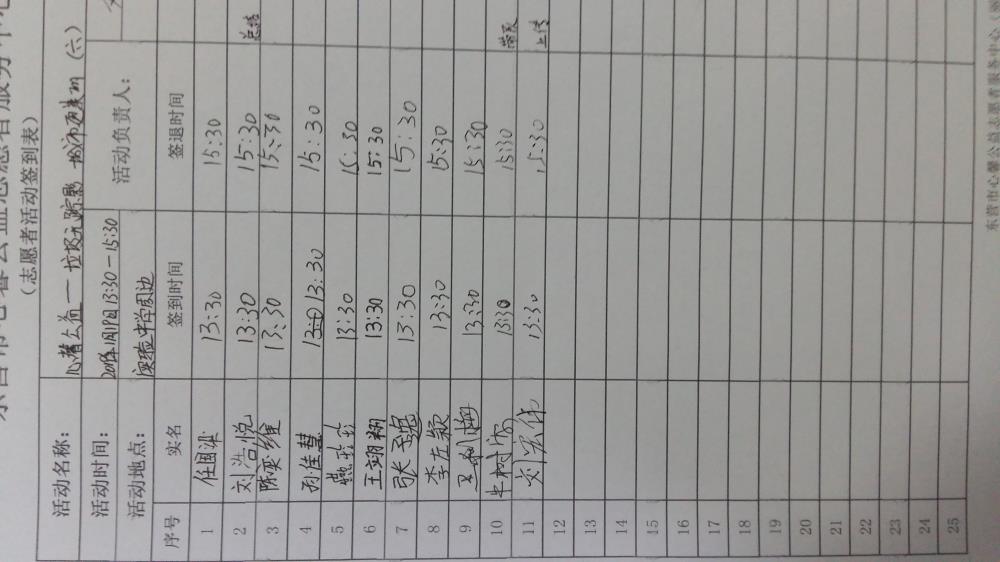 东营市心馨公益志愿者服务中心
（志愿者活动签到表）
活动名称： 心馨公益——垃圾无踪影 城市更美丽（六）
活动时间： 13:30-15:30 活动负责人：
活动地点： 实验中学周边
序号 实名 签到时间 签退时间
1 任国梁 13:30 15:30
2 刘浩悦 13:30 15:30 总结
3 陈奕维 13:30 15:30
4 孙佳慧 13:30 15:30
5 燕玲玲 13:30 15:30
6 王翊翔 13:30 15:30
7 13:30 15:30
8 李左颖 13:30 15:30
9 13:30 15:30
10 13:30 15:30
11 刘宏伟 13:30 15:30 上传
12
13
14
15
16
17
18
19
20
21
22
23
24
25
东营市心馨公益志愿者服务中心